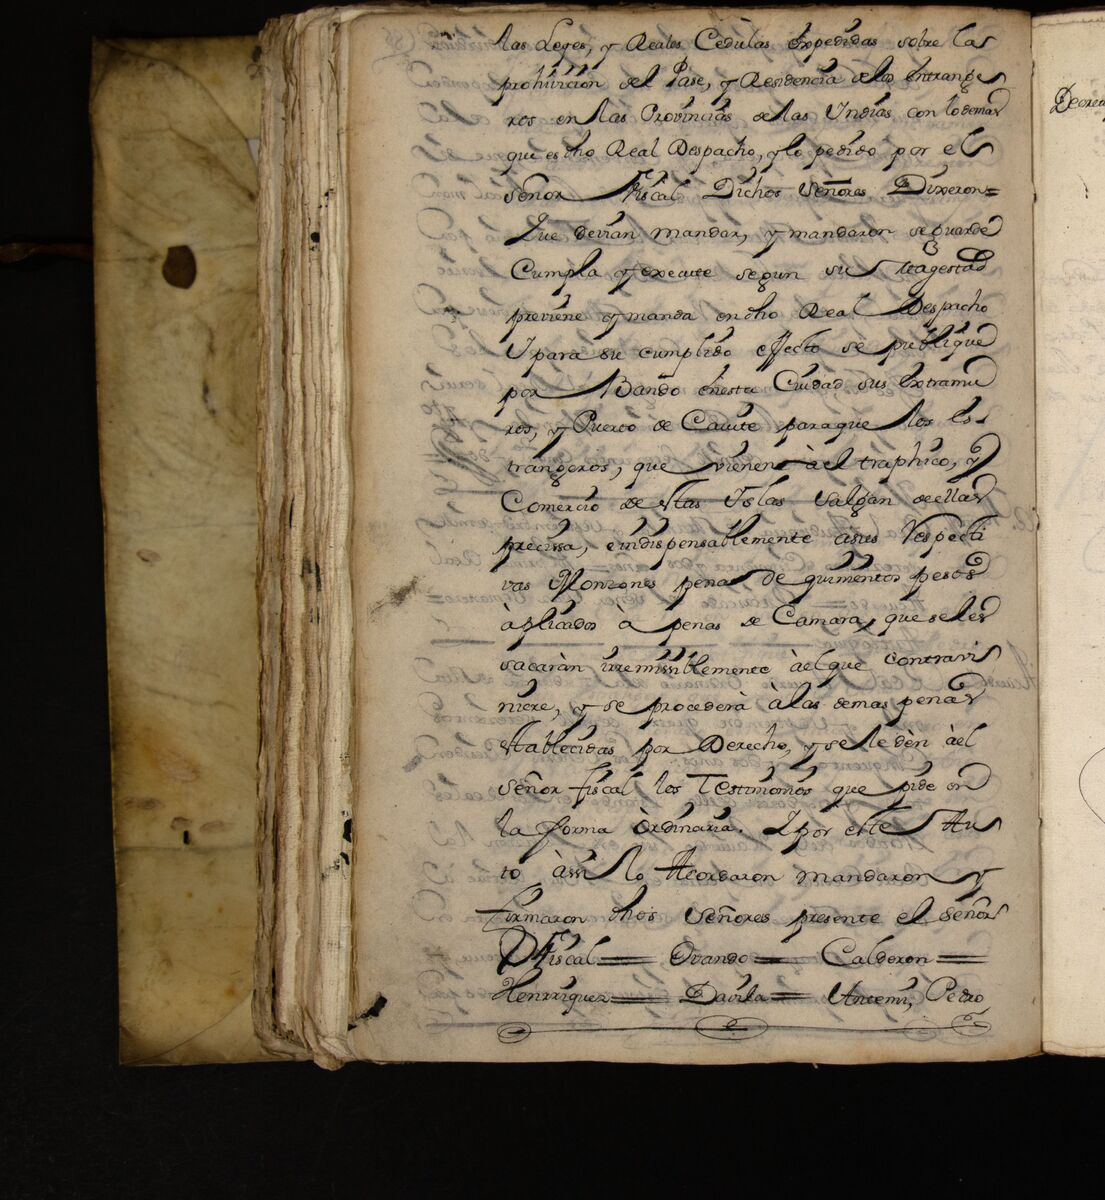 las Leyes, y Reales Cedulas expedidas sobre las
prohivicion del Pase, y Residencia delos Entrange
ros en las Provincias delas Yndias con lodemas
que es dho Real Despacho, y lo pedido por el
señor Fiscal Dichos Señores Dixeron=
Que devian mandar, y mandaron seguarde
Cumpla y execute segun su Magestad
previene y manda en dho Real Despacho
Ypara su cumplido effecto se publique
por Bando enesta Ciudad, sus Extramu
ros, y Puerto de Cavite paraque los Es-
trangeros, que vienen àel traphico, y
Comercio de estas Yslas Salgan deellas
precissa, eindispensablemente àsus Respecti
vas Monzones pena de quinientos pesos
àplicados à penas de Camara, que seles
sacaràn irremissiblemente àel que contravi
niere, y se procederà àlas demas penas
establecidas por Derecho, y se le dèn àel
señor fiscal los Testimonios que pide en
la forma Ordinaria. Ypor este Au
to àssi lo Acordaron mandaron y
firmaron dhos Señores presente el Señor
Fiscal= Ovando= Calderon=
Henrriquez= Davila= Antemi, Pedro
Decreto